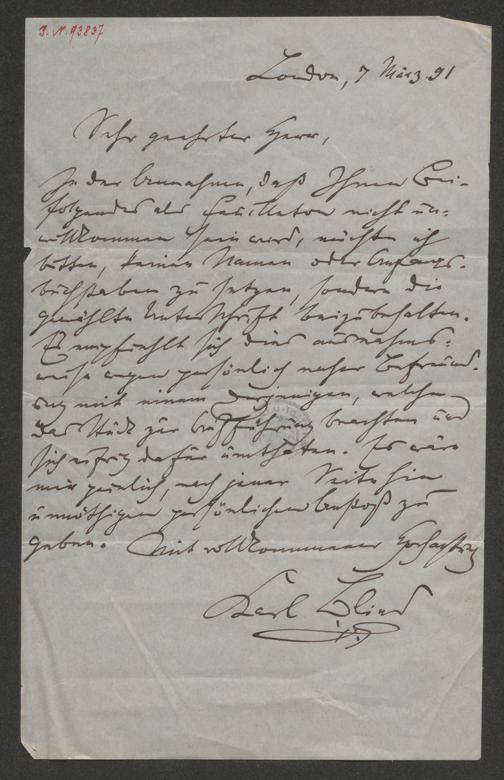 I. N. 93837
London, 7 März 91
Sehr geehrter Herr,
In der Annahme, daß Ihnen Bei-
folgendes als Feuilleton nicht un-
willkommen sein wird, möchte ich
bitten, keinen Namen oder Anfangs-
buchstaben zu setzen, sondern die
gewählte Unterschrift beizubehalten.
Es empfiehlt sich dies ausnahms-
weise wegen persönlich naher Befreund-
ung mit einem Derjenigen, welche
das Stück zur Aufführung brachten und
sich eifrig dafür umthaten. Es wäre
mir peinlich, nach jener Seite hin
unnöthigen persönlichen Anstoß zu
geben. Mit vollkommener Hochachtung
Karl Blind